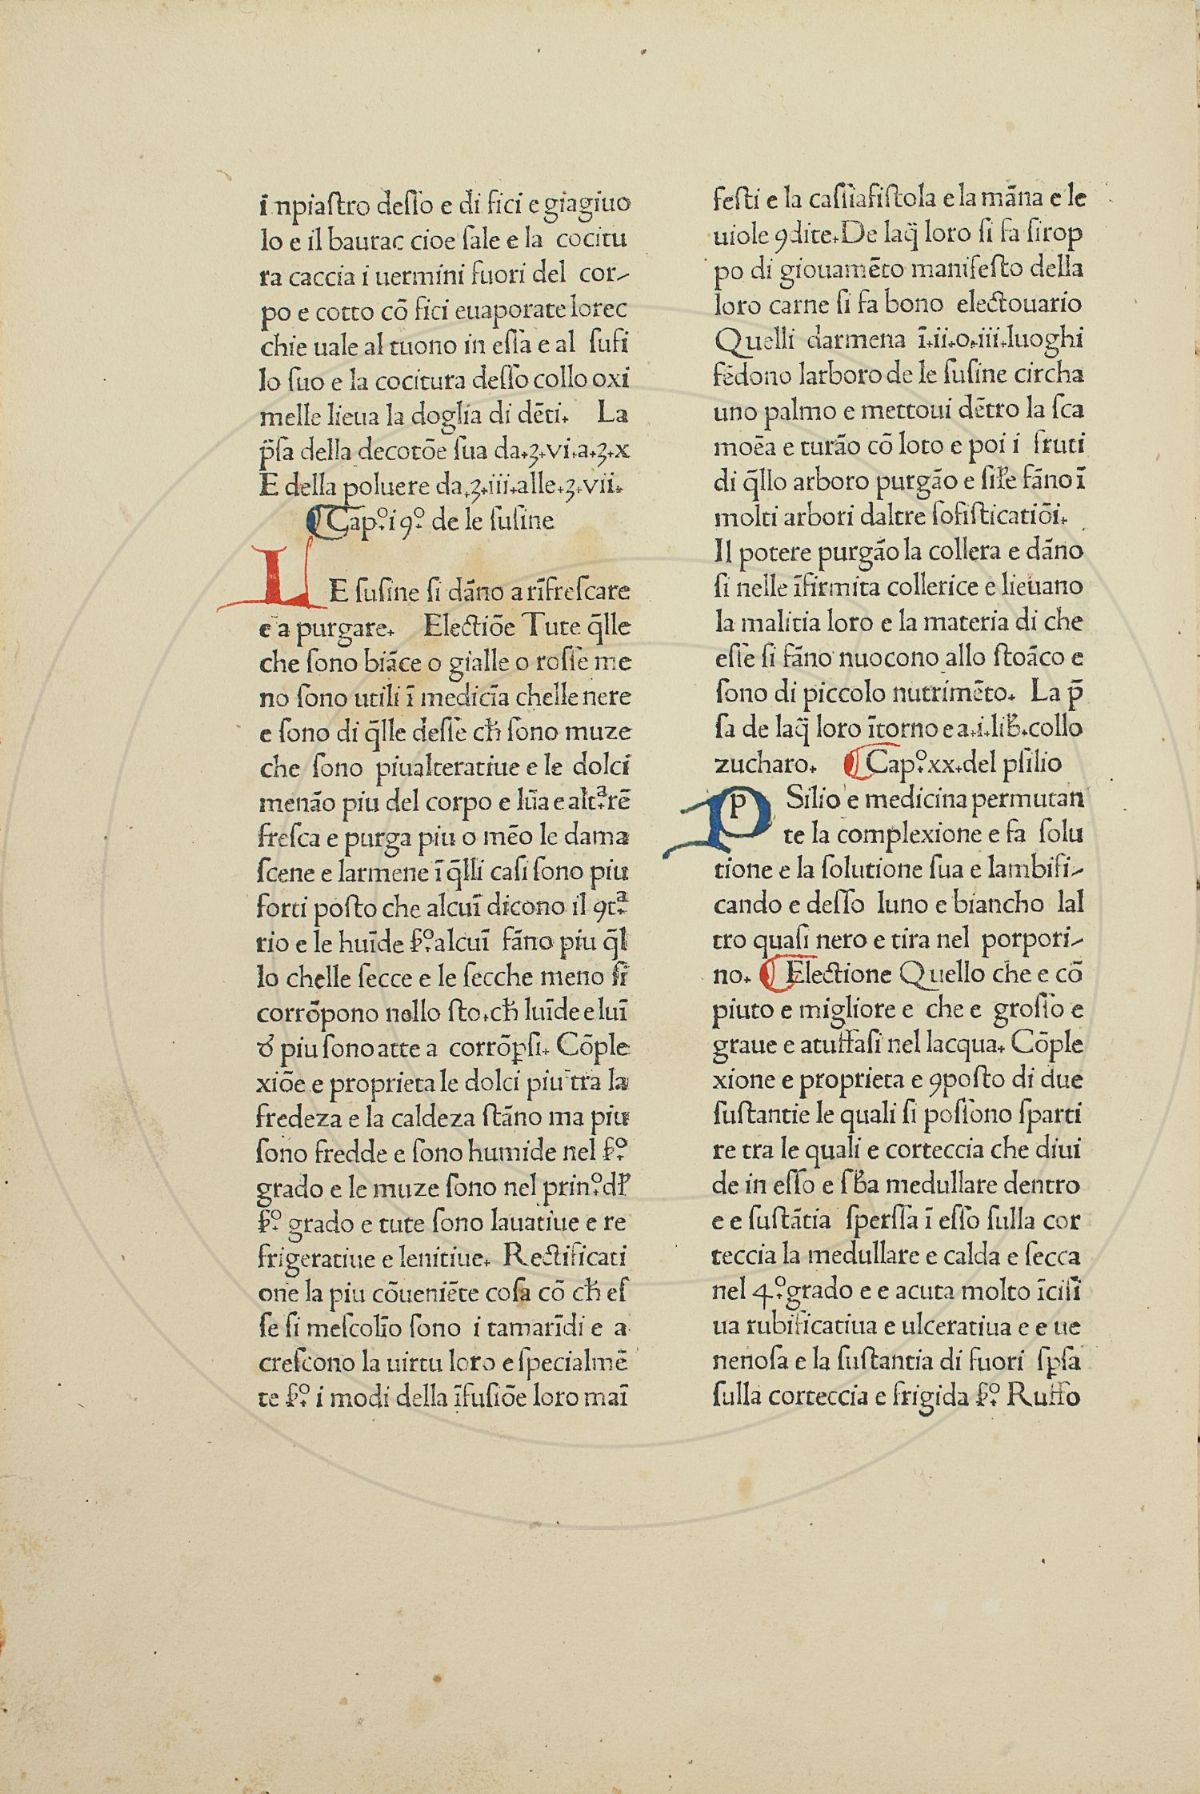 ī npiaſtro deſſo e di fici e giagiuo
lo e il baurac cioe ſale e la cocitu
ra caccia i uermini fuori del cor-
po e cotto cō fici euaporate lorec
chie uale al tuono in eſſa e al ſufi
lo ſuo e la cocitura deſſo collo oxi
melle lieua la doglia di dēti. La
p̄ſa della decotōe ſua da.ʒ.vi.a.ʒ.x
E della poluere da.ʒ.iii.alle.ʒ.vii.
Cap.º i9.º de le ſuſine
LE ſuſine ſi dāno a rīfreſcare
e a purgare. Electiōe Tute q̄lle
che ſono biāce o gialle o roſſe me
no ſono utili ī medicīa chelle nere
e ſono di q̄lle deſſe cħ ſono muze
che ſono piualteratiue e le dolci
menāo piu del corpo e lūa e altͣ.rē
freſca e purga piu o mēo le dama
ſcene e larmene ī q̄lli caſi ſono piu
forti poſto che alcuī dicono il ꝯtͣ.
rio e le huīde ẜ.º alcuī fāno piu q̄l
lo chelle ſecce e le ſecche meno ſī
corrōpono nello ſto.cħ luīde e luī
ẟ piu ſono atte a corrōꝑſi. Cōple
xiōe e proprieta le dolci piu tra la
fredeza e la caldeza ſtāno ma piu
ſono fredde e ſono humide nel ẜ.º
grado e le muze ſono nel prin.º dꝉ
ẜ.º grado e tute ſono lauatiue e re
frigeratiue e lenitiue. Rectificati
one la piu cōueniēte coſa cō cħ eſ
ſe ſi meſcolīo ſono i tamarīdi e a
creſcono la uirtu loro e ſpecialmē
te ẜ.º i modi della īfuſiōe loro maī
feſti e la caſſiafiſtola e la māna e le
uiole ꝯdite.De laq̄ loro ſi fa ſirop
po di giouamēto manifeſto della
loro carne ſi fa bono electouario
Quelli darmena ī.ii.o.iii.luoghi
fēdono larboro de le ſuſine circha
uno palmo e mettoui dētro la ſca
moēa e turāo cō loto e poi i fruti
di q̄llo arboro purgāo e ſiꝉe fāno ī
molti arbori daltre ſofiſticatiōi.
Il potere purgāo la collera e dāno
ſi nelle īfirmita collerice e lieuano
la malitia loro e la materia di che
eſſe ſi fāno nuocono allo ſtoāco e
ſono di piccolo nutrimēto. La p̄
ſa de laq̄ loro ītorno e a.i.liƀ.collo
zucharo. Cap.º xx.del pſilio
PSilio e medicina permutan
te la complexione e fa ſolu
tione e la ſolutione ſua e lambifi-
cando e deſſo luno e biancho lal
tro quaſi nero e tira nel porpori-
no. Electione Quello che e cō
piuto e migliore e che e groſſo e
graue e atuffaſi nel lacqua. Cōple
xione e proprieta e ꝯpoſto di due
ſuſtantie le quali ſi poſſono ſparti
re tra le quali e corteccia che diui
de in eſſo e ſƀa medullare dentro
e e ſuſtātia ſperſſa ī eſſo ſulla cor
teccia la medullare e calda e ſecca
nel 4.º grado e e acuta molto īciſī
ua rubificatiua e ulceratiua e e ue
nenoſa e la ſuſtantia di fuori ſꝑſa
ſulla corteccia e frigida ẜ.º Ruffo